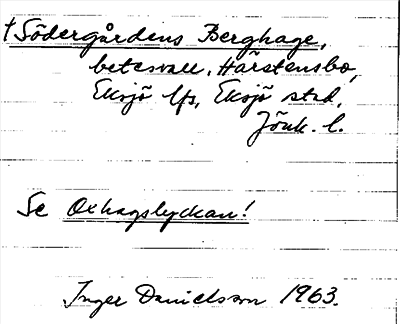 †Södergårdens Berghage,
betesvall, Hårstensbo,
Eksjö lfs, Eksjö stad,
Jönk. l.
Se Oxhagslyckan!
Inger Danielsson 1963.